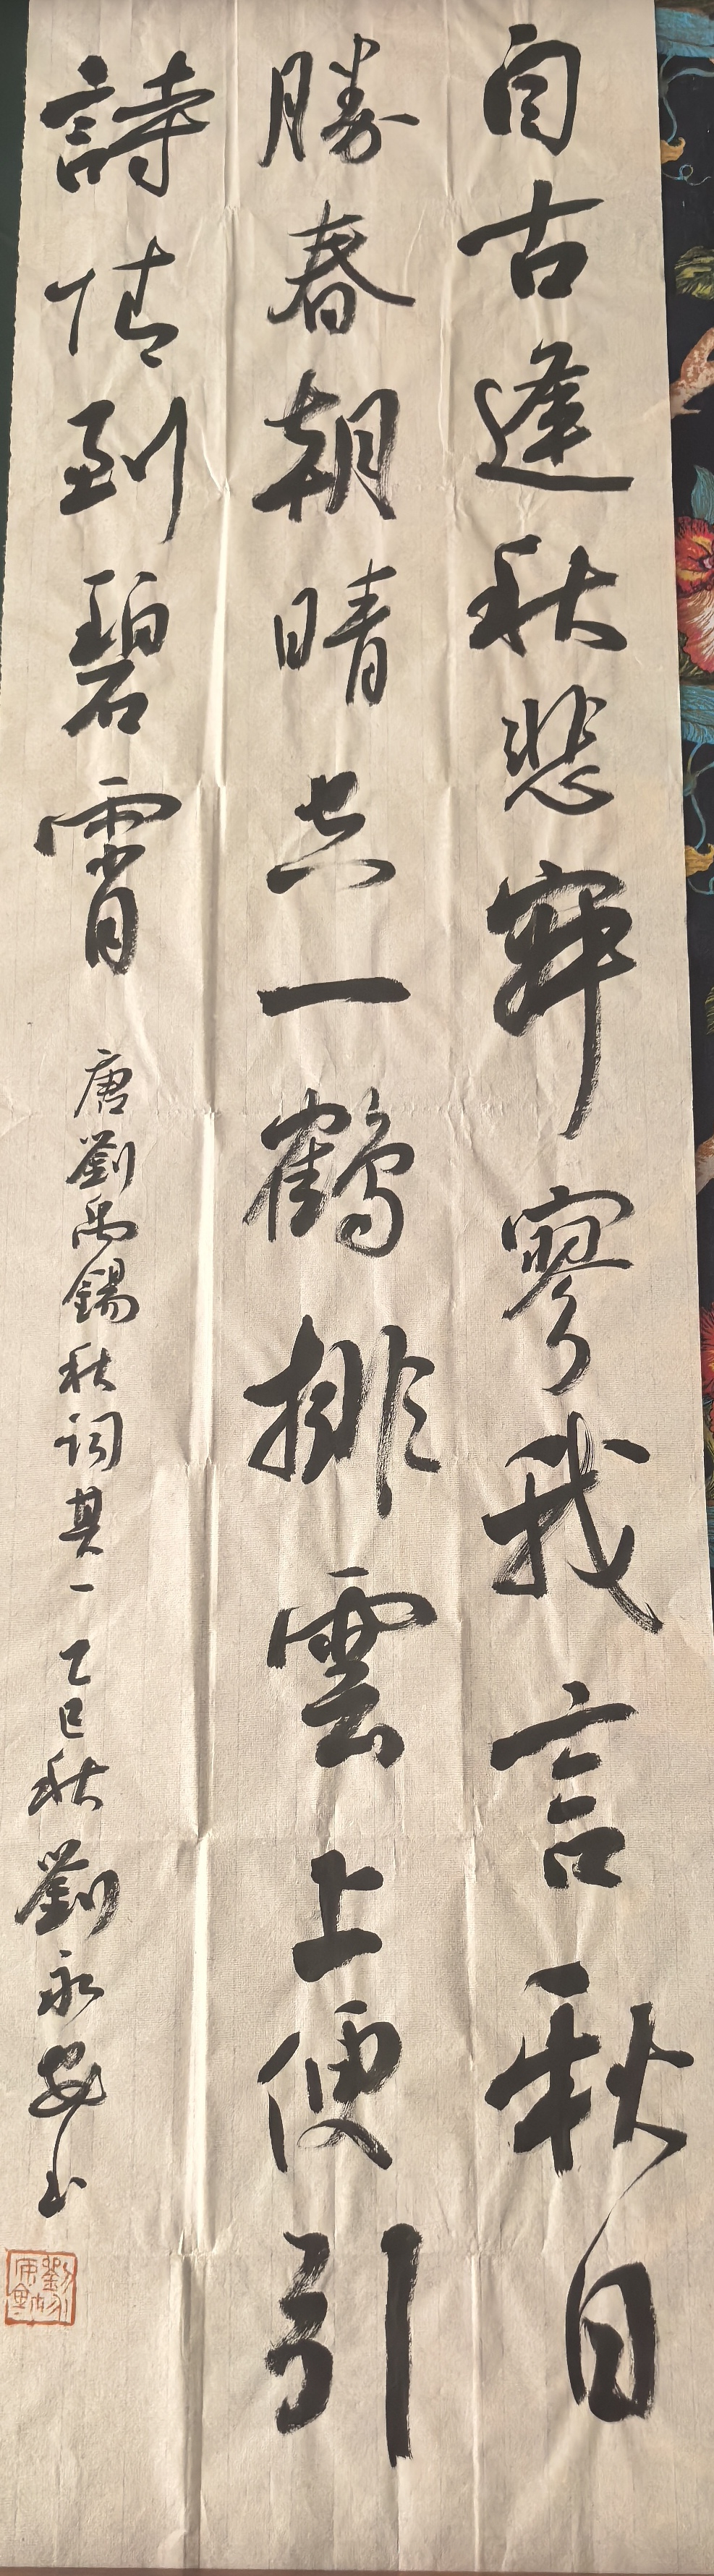 自古逢秋悲寂寥我言秋日
勝春朝晴空一鶴排雲上便引
詩情到碧霄
唐劉禹錫秋詞其一乙巳秋劉永安书